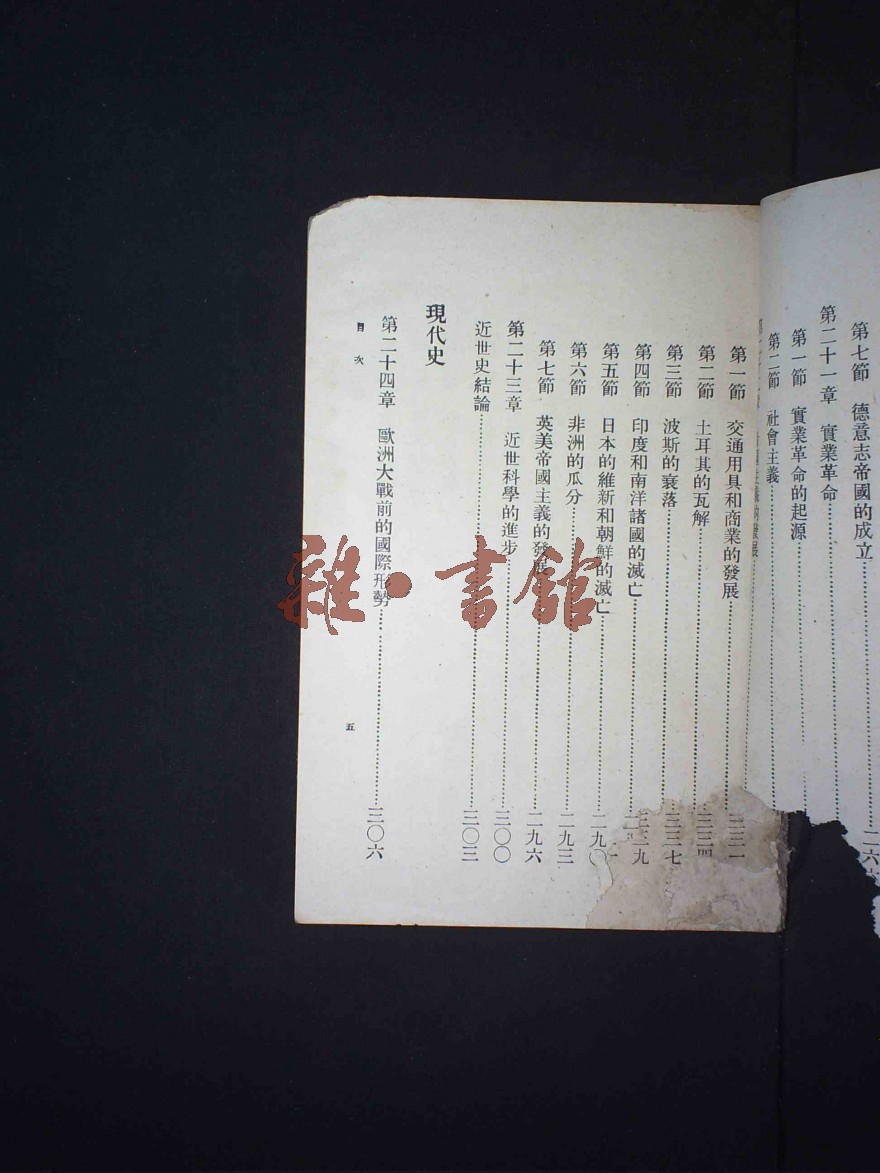 第七節　德意志帝國的成立……二六
第二十一章　實業革命
第一節　實業革命的起源
第二節　社會主義
第一節　交通用具和商業的發展
第二節　土耳其的瓦解
第三節　波斯的衰落
第四節　印度和南洋諸國的滅亡
第五節　日本的維新和朝鮮的滅亡……二九
第六節　非洲的瓜分……二九三
第七節　英美帝國主義的發展……二九六
第二十三章　近世科學的進步……三〇〇
近世史結論……三〇三
現代史
第二十四章　歐洲大戰前的國際形勢……三〇六
目次
五
雜·書館